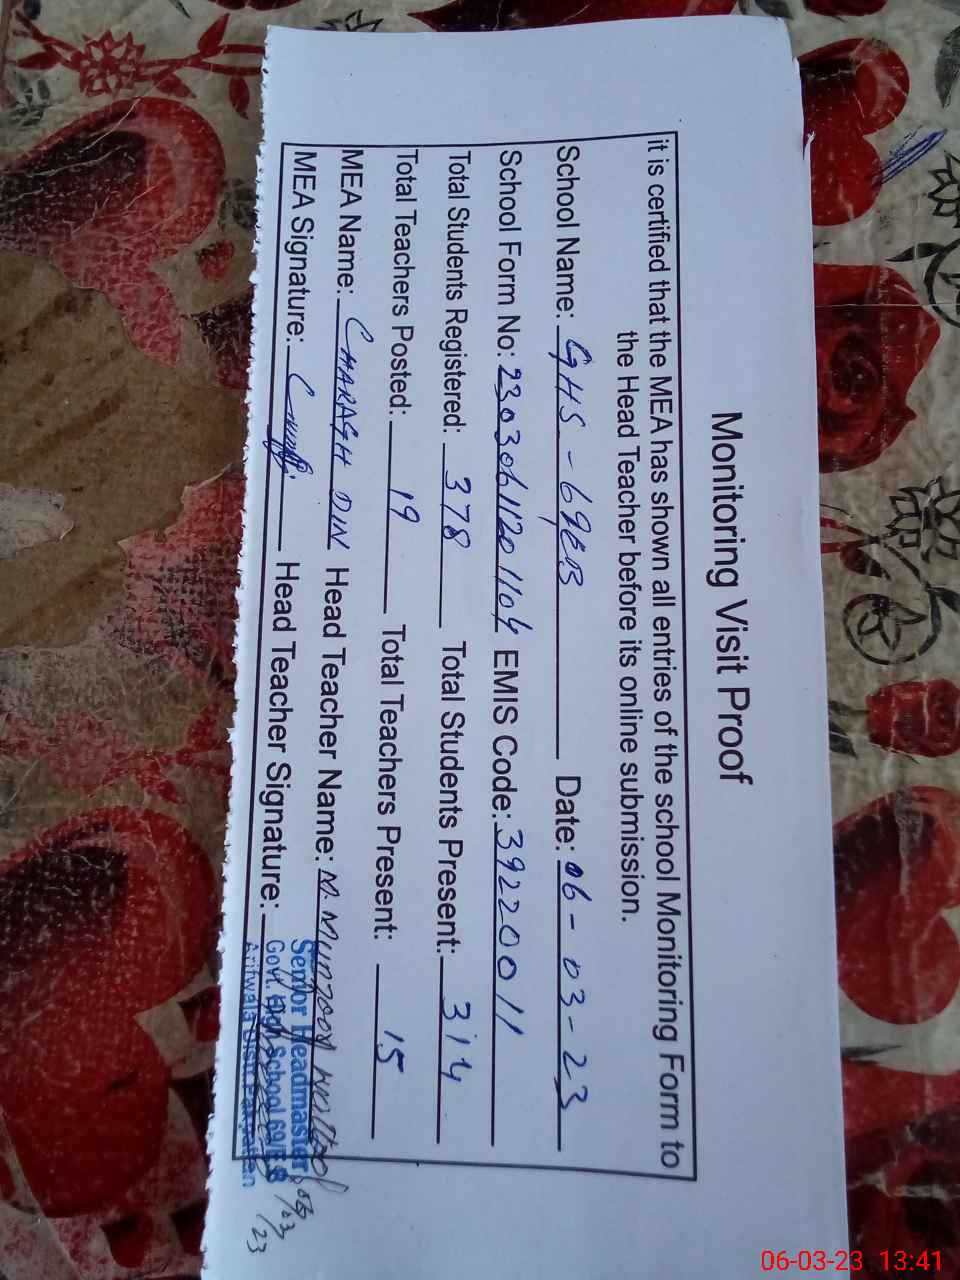 Monitoring Visit Proof
it is certified that the MEA has shown all entries of the school Monitoring Form to
the Head Teacher before its online submission.
School Name: GHS - 69EB Date: 06-03-23
School Form No: 2303061120 1104 EMIS Code: 39220011
Total Students Registered: 378 Total Students Present: 314
Total Teachers Posted: 19 Total Teachers Present: 15
MEA Name: CHARAGH DIN Head Teacher Name: M. Munzoor
MEA Signature: Head Teacher Signature:
Senior Headmaster
Govt. High School 69/E.B
Arifwala Distt Pakpattan
06/03/23
06-03-23 13:41